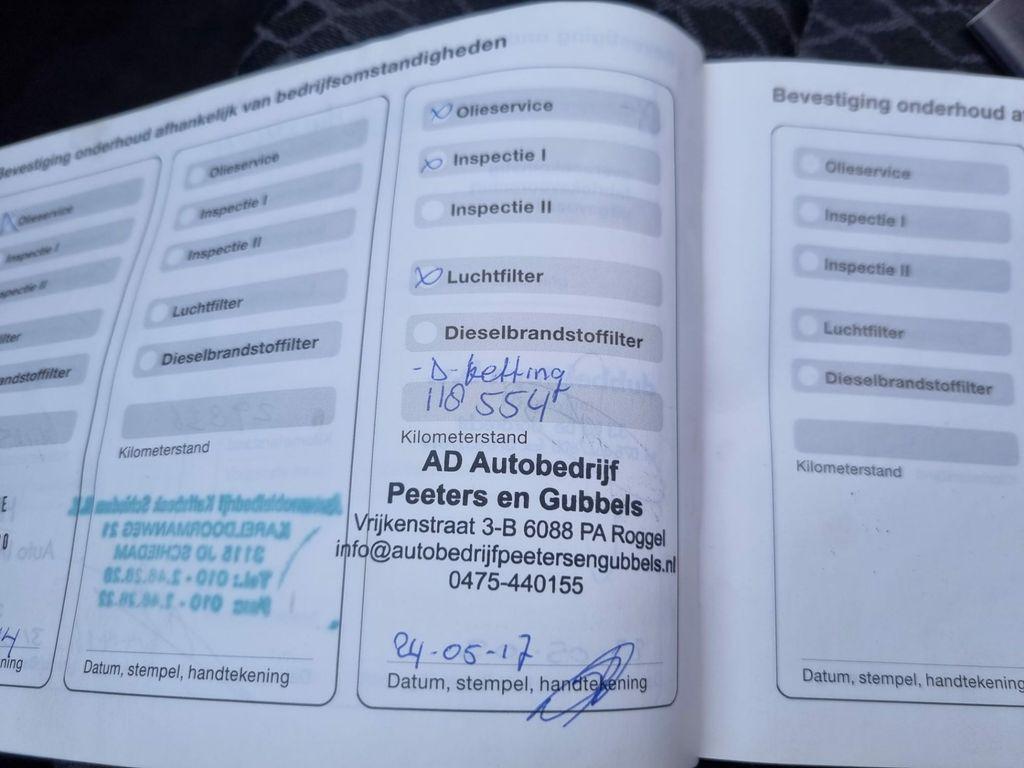 Bevestiging onderhoud afhankelijk van bedrijfsomstandigheden
Olieservice
Inspectie I
Inspectie II
Dieselbrandstoffilter
Olieservice
Inspectie I
Inspectie II
Luchtfilter
Dieselbrandstoffilter
Kilometerstand
KARELDOORMANWEG 21
3115 JD SCHIEDAM
Datum, stempel, handtekening
Olieservice
Inspectie I
Inspectie II
Luchtfilter
Dieselbrandstoffilter
-D-ketting
118 554
Kilometerstand
AD Autobedrijf
Peeters en Gubbels
Vrijkenstraat 3-B 6088 PA Roggel
info@autobedrijfpeetersengubbels.nl
0475-440155
24-05-17
Datum, stempel, handtekening
Bevestiging onderhoud
Olieservice
Inspectie I
Inspectie II
Luchtfilter
Dieselbrandstoffilter
Kilometerstand
Datum, stempel, handtekening